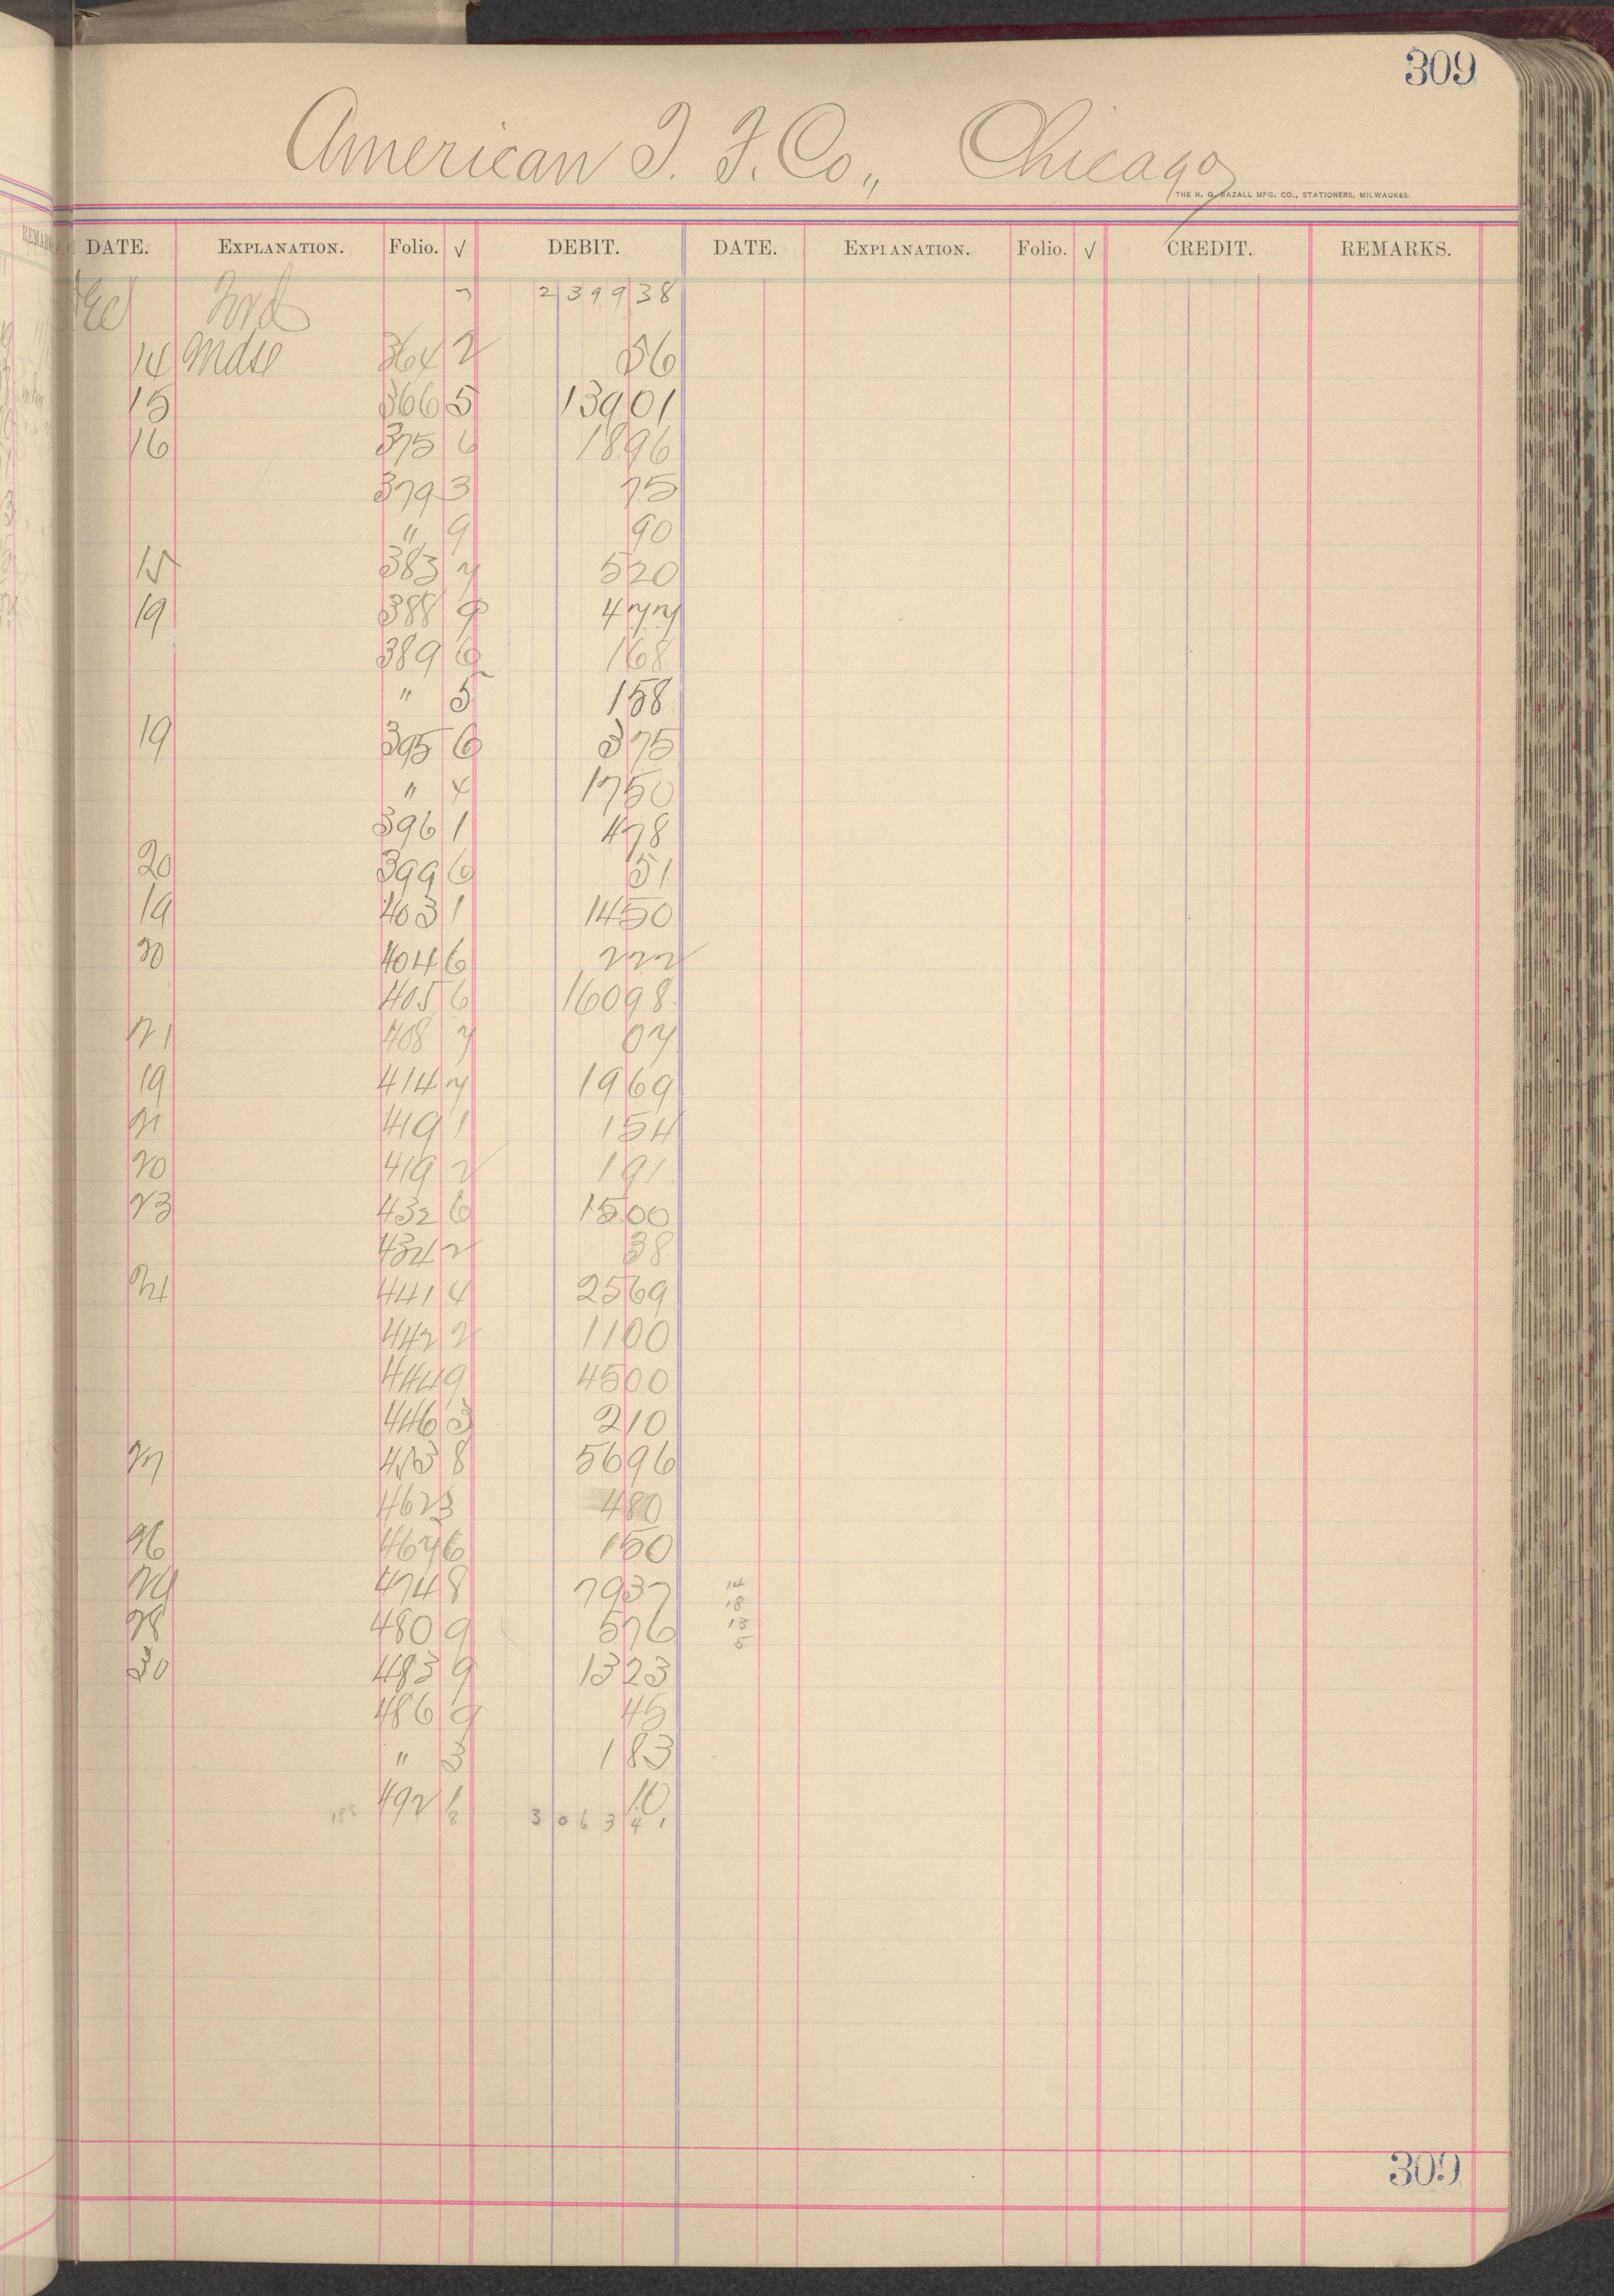 309
American T. F. Co., Chicago
THE H. G. RAZALL MFG. CO., STATIONERS, MILWAUKEE.
DATE. EXPLANATION. Folio. √ DEBIT. DATE. EXPLANATION. Folio. √ CREDIT. REMARKS.
Dec Fwd 7 2399 38
14 Mdse 364 2 56
15 366 5 139 01
16 375 6 18 96
379 3 75
" 9 90
15 383 7 5 20
19 388 9 4 77
389 6 1 68
" 5 1 58
19 395 6 3 75
" 4 17 50
396 1 4 78
20 399 6 51
19 403 1 14 50
20 404 6 2 22
405 6 160 98
21 408 7 07
19 414 7 19 69
21 419 1 1 54
20 419 2 1 91
23 432 6 15 00
434 2 38
24 441 4 25 69
442 2 11 00
444 9 45 00
446 3 2 10
27 453 8 56 96
462 3 4 80
26 467 6 1 50
29 474 8 79 37 14
18
28 480 9 5 76 13
5
30 483 9 13 23
486 9 45
" 3 1 83
492 1 10
188 8 3063 41
309